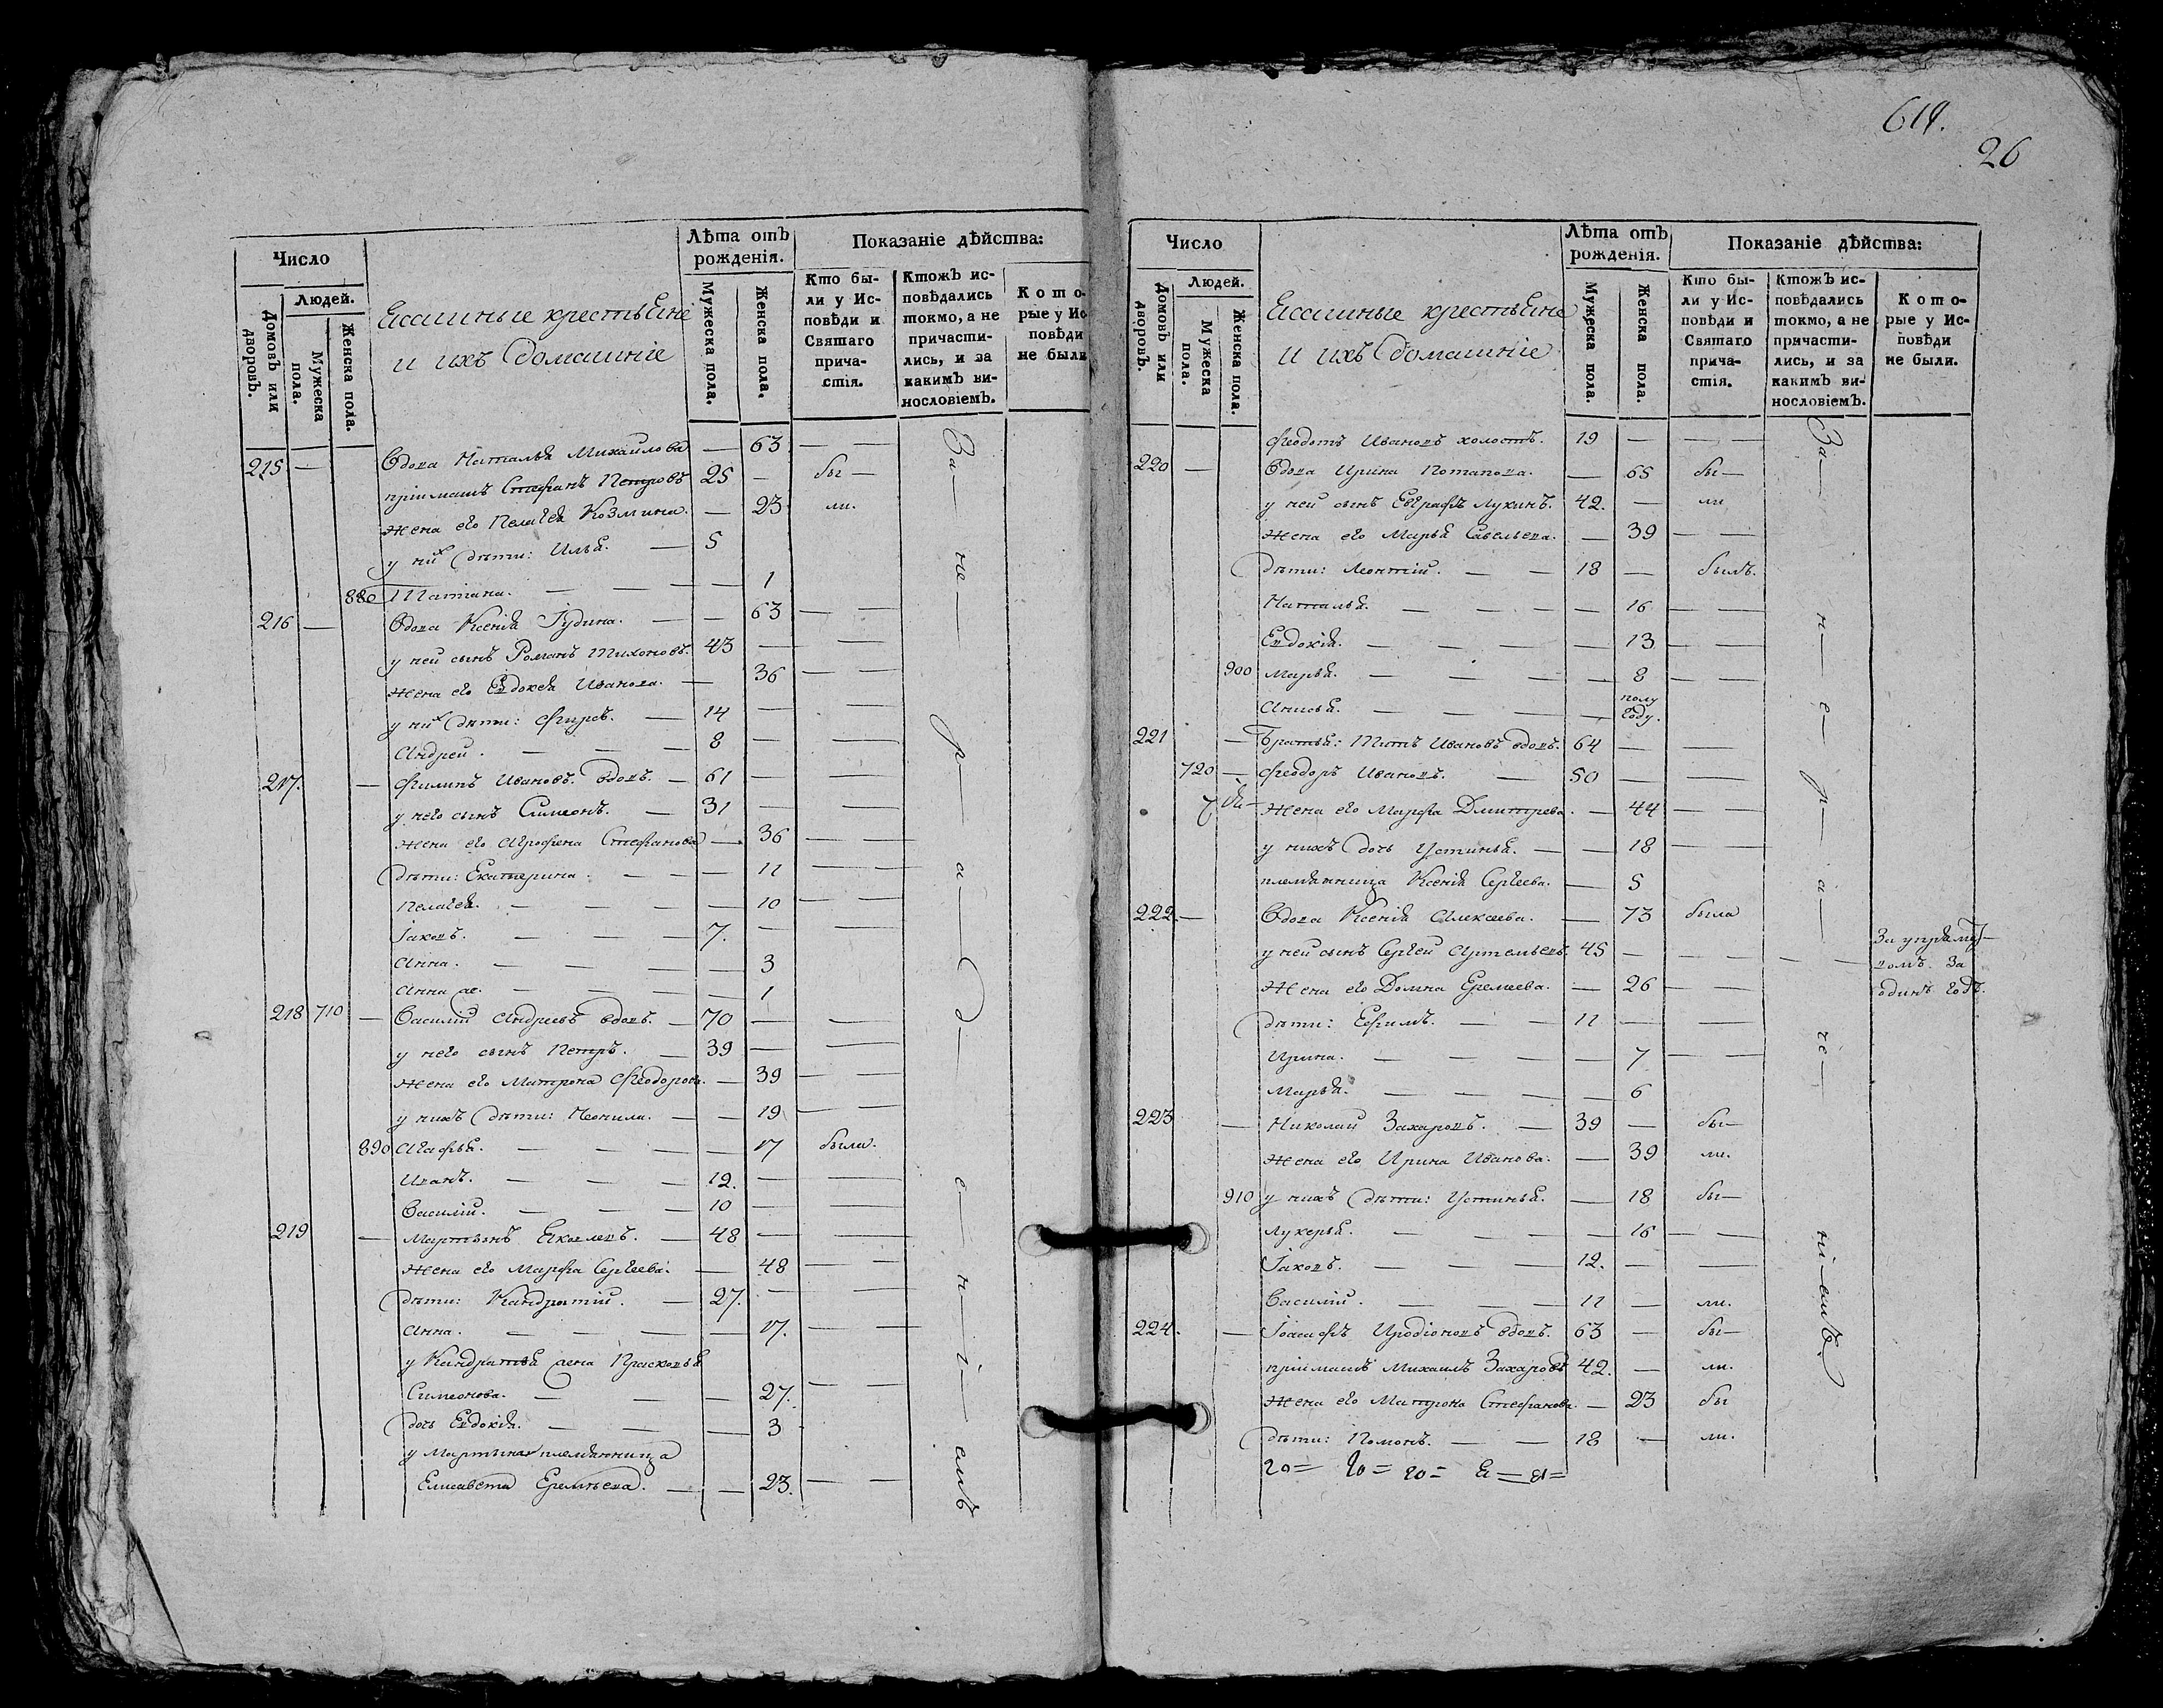 614.
26
Число
Людей.
Домовъ или дворовъ.
Мужеска пола.
Женска пола.
крестьѧне
и ихъ домашніе
Лѣта отъ рожденія.
Мужеска пола.
Женска пола.
Показаніе дѣйства:
Кто бы-
ли у Ис-
повѣди и
Святаго
прича-
стія.
Ктожъ ис-
повѣдались
токмо, а не
причасти-
лись, и за
какимъ ви-
нословіемъ.
Кото-
рые у Ис
повѣди
не были
215 — вдова Наталья Михайлова — 63 — —
пріимышъ Стефанъ Петровъ 25 — бы —
жена его Пелагея Козмина. — 23 ли.
у них дѣти: Илья. — 5
880 Татіана. — — — 1
216 — вдова Ксенія Іудина. — — 63 — —
у ней сынъ Романъ Тихоновъ. 43 — —
жена его Евдокея Иванова. — 36 — —
у них дѣти: Фирсъ. — 14 — —
Андрей. — — — 8 — —
217. — Филипъ Ивановъ. вдовъ. — 61 — —
у него сынъ Симеонъ. — 31 — —
жена его Агрофена Стефанова — 36 — —
дѣти: Екатерина. — — — 11 — —
Пелагея. — — — — 10 — —
Іаковъ. — — — 7. — —
Анна. — — — — 3
Анна же. — — — — 1
218 710 — Василій Андреевъ вдовъ. — 70 — —
у него сынъ Петръ. — 39 — —
жена его Матрона Феодорова. — 39 — —
у нихъ дѣти: Неонила. — — 19 — —
890 Агафья. — — — — 17 была.
Иванъ. — — — 12. — —
Василій. — — — 10 — —
219 — Мартынъ Яковлевъ. — 48 — —
жена его Марфа Сергеева. — 48 — —
дѣти: Кандратій. — 27. — —
Анна. — — — — 17. — —
у Кандратья жена Прасковья
Симеонова. — — — 27. — —
дочь Евдокія. — — — 3 —
у Мартына племянница
Елисавета Еремѣева. — — 23. — —
За — не — р — а — д — е — н — і — емъ
Число
Людей.
Домовъ или дворовъ.
Мужеска пола.
Женска пола.
крестьѧне
и ихъ домашніе
Лѣта отъ рожденія.
Мужеска пола.
Женска пола.
Показаніе дѣйства:
Кто бы-
ли у Ис-
повѣди и
Святаго
прича-
стія.
Ктожъ ис-
повѣдались
токмо, а не
причасти-
лись, и за
какимъ ви-
нословіемъ.
Кото-
рые у Ис-
повѣди
не были.
Феодотъ Ивановъ холостъ. 19 — — —
220 — вдова Ирина Потапова. — 65 бы —
у ней сынъ Евграфъ Лукинъ. 42. — ли
жена его Марья Савельева. — 39 — —
дѣти: Леонтій. — — 18 — былъ.
Наталья. — — — — 16 — —
Евдокія. — — — — 13 — —
900 Марья. — — — — 8 — —
Анисья. — — — — полу году.
221 — Братья: Титъ Ивановъ вдовъ. 64 — —
720 — Феодоръ Ивановъ. — 50 — —
жена его Марфа Дмитрева. — 44 — —
у нихъ дочь Устинья. — — 18 — —
племянница Ксенія Сергеева. — 5
222 — вдова Ксенія Алексеева. — 73 была
у ней сынъ Сергей Артемьевъ. 45 — — — — — За упрямс-
твомъ. за
одинъ годъ.
жена его Домна Еремеева. — 26 — —
дѣти: Ефимъ. — — 11 — —
Ирина. — — — — 7 — —
Марья. — — — — 6
223 — Николай Захаровъ. — 39 — бы —
жена его Ирина Иванова. — 39 ли.
910 у нихъ дѣти: Устинья. — 18 бы —
Лукерья. — — — — 16 — —
Іаковъ. — — — 12. — —
Василій. — — — 11 — ли.
224. — Іоасафъ Иродіоновъ вдовъ. 63 — бы —
пріимышъ Михаилъ Захаровъ 42. — ли.
жена его Матрона Стефанова. — 23 бы
дѣти: Помонъ. — — 18 — ли.
За — н — е — р — а — че — ніемъ